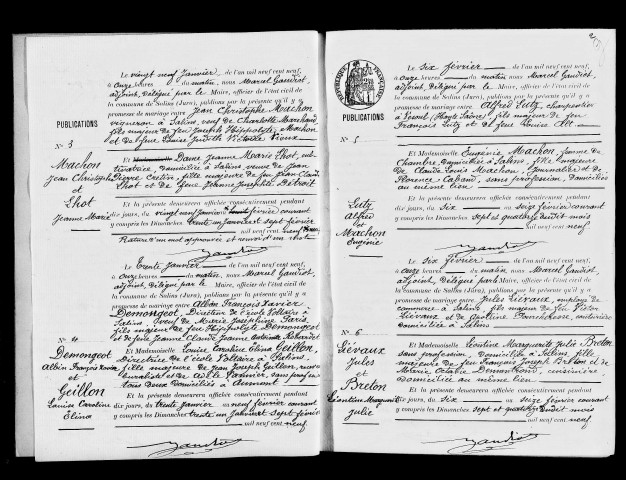 PUBLICATIONS
N° 3
Machon
Jean Christophe
et
Lhot
Jeanne Marie
Le vingt neuf janvier de l'an mil neuf cent neuf,
à onze heures du matin, nous Marcel Gaudiot,
adjoint, délégué par le Maire, officier de l'état civil de
la commune de Salins (Jura), publions par la présente qu'il y a
promesse de mariage entre Jean Christophe Machon
vigneron à Salins, veuf de Charlotte Marchand
fils majeur de feu Joseph Hippolyte Machon
et de feue Judith
Et Dame Jeanne Marie Lhot,
domiciliée à Salins veuve de Jean
Pierre fille majeure de feu Jean Claude
Lhot et de feue Jeanne Josephte Détroit
Et la présente demeurera affichée consécutivement pendant
dix jours, du vingt neuf janvier au février courant
y compris les Dimanches trente un janvier et sept février
mil neuf cent neuf
Rature d'un mot approuvée et
N° 4
Demongeot
Albin François Xavier
et
Guillon
Louise Caroline
Elina
Le trente janvier de l'an mil neuf cent neuf,
à onze heures du matin, nous Marcel Gaudiot,
adjoint, délégué par le Maire, officier de l'état civil de
la commune de Salins (Jura), publions par la présente qu'il y a
promesse de mariage entre Albin François Xavier
Demongeot, Directeur de l'école Voltaire à
Salins, veuf de Marie Joséphine Paris,
fils majeur de feu Hippolyte Demongeot
et de feue Jeanne Claude Jeanne Antoinette
Et Mademoiselle Louise Caroline Elina Guillon,
Directrice de l'école Voltaire à Salins,
fille majeure de Jean Joseph Guillon,
et de Adèle sans profession
tous deux domiciliés à Aumont
Et la présente demeurera affichée consécutivement pendant
dix jours, du trente janvier au neuf février courant
y compris les Dimanches trente un janvier et sept février
mil neuf cent neuf
PUBLICATIONS
N° 5
Lutz
Alfred
et
Machon
Eugénie
RÉPUBLIQUE FRANÇAISE
Le six février de l'an mil neuf cent neuf,
à onze heures du matin nous Marcel Gaudiot,
adjoint, délégué par le Maire, officier de l'état civil de
la commune de Salins (Jura), publions par la présente qu'il y a
promesse de mariage entre Alfred Lutz, charpentier
à Vesoul (Haute Saône) fils majeur de feu
François Lutz et de feue Louise Alt
Et Mademoiselle Eugénie Machon, femme de
Chambre, domiciliée à Salins, fille majeure
de Claude Louis Machon, Journalier et de
Florence sans profession, domiciliés
au même lieu
Et la présente demeurera affichée consécutivement pendant
dix jours, du six au seize février courant
y compris les Dimanches sept et quatorze dudit mois
mil neuf cent neuf
N° 6
Liévaux
Jules
et
Breton
Léontine Marguerite
Julie
Le six février de l'an mil neuf cent neuf,
à onze heures du matin, nous Marcel Gaudiot,
adjoint, délégué par le Maire, officier de l'état civil de
la commune de Salins (Jura), publions par la présente qu'il y a
promesse de mariage entre Jules Liévaux, employé de
commerce à Salins, fils majeur de feu Victor
Liévaux et de couturière
domiciliée à Salins
Et Mademoiselle Léontine Marguerite Julie Breton
sans profession, domiciliée à Salins, fille
majeure de feu François Joseph Breton et de
Marie Octavie cuisinière
domiciliée au même lieu
Et la présente demeurera affichée consécutivement pendant
dix jours, du six au seize février courant
y compris les Dimanches sept et quatorze dudit mois
mil neuf cent neuf